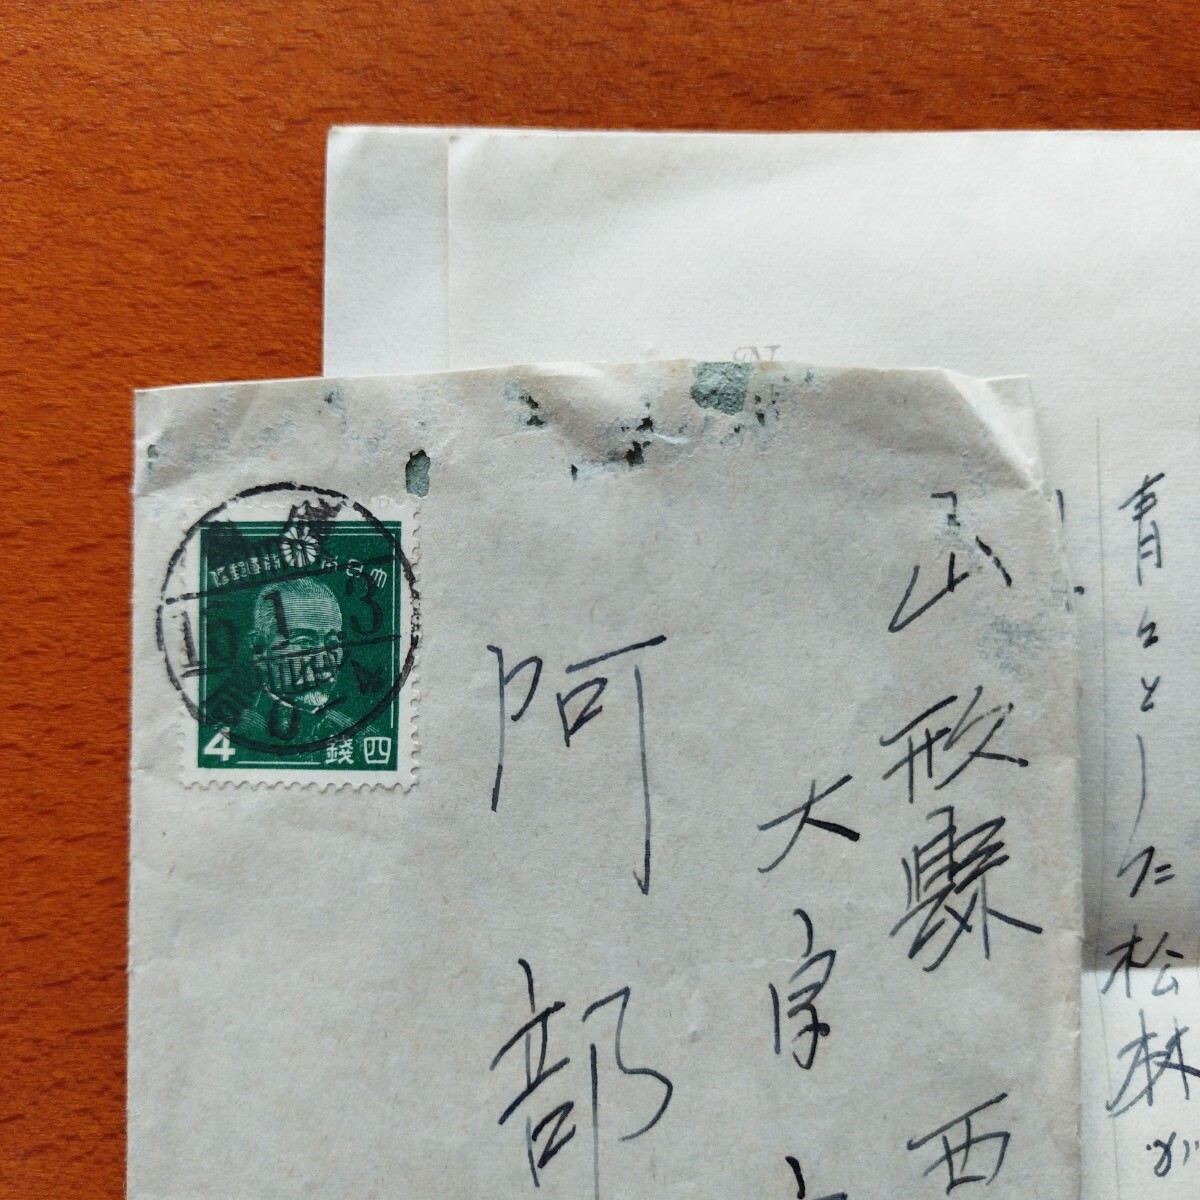 青々とした松林が
山形縣西
大字
阿部
大日本帝國郵便
15.1.3
4
四錢